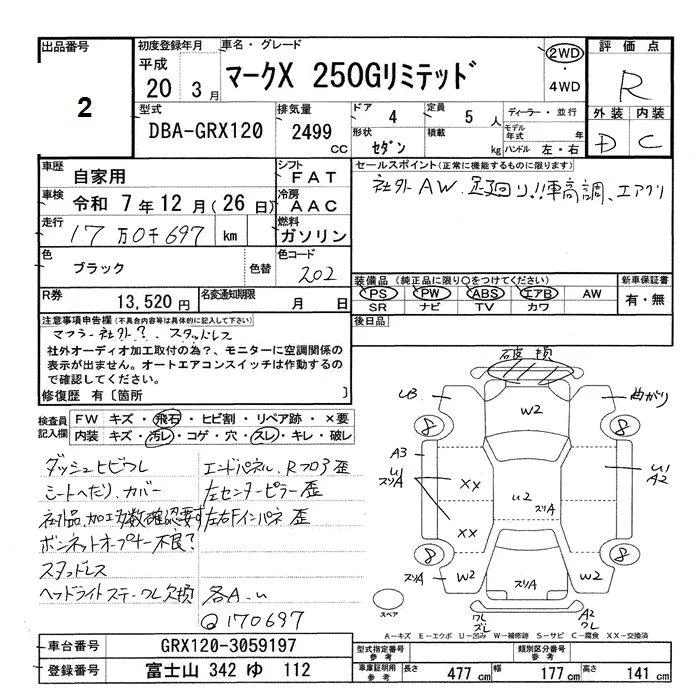 出品番号
2
初度登録年月
平成
20 3月
車名・グレード
マークX 250Gリミテッド
2WD
・
4WD
評価点
R
外装 内装
D C
型式
DBA-GRX120
排気量
2499 CC
ドア 4
定員 5 人
形状 セダン
積載 kg
ディーラー・並行
モデル年式 年
ハンドル 左・右
車歴 自家用
シフト FAT
車検 令和 7年 12月(26日)
冷房 AAC
走行 17万0千697 km
燃料 ガソリン
色 ブラック 色替
色コード 202
R券 13,520円
名変通知期限 月 日
セールスポイント(正常に機能するものに限ります)
社外AW.足廻り!!車高調、エアクリ
装備品(純正品に限り○をつけてください)
PS PW ABS エアB AW
SR ナビ TV カワ
新車保証書
有・無
後日品
注意事項申告欄(不具合内容等は具体的に記入して下さい)
マフラー社外?、スタッドレス
社外オーディオ加工取付の為?、モニターに空調関係の
表示が出ません。オートエアコンスイッチは作動するの
で確認してください。
修復歴 有〔箇所 〕
検査員
記入欄
FW キズ・飛石・ヒビ割・リペア跡・×要
内装 キズ・汚レ・コゲ・穴・スレ・キレ・破レ
ダッシュヒビワレ
シートへたり、カバー
社外品、加工多数確認要す
ボンネットオープナー不良?
スタッドレス
ヘッドライトステーワレ欠損
エンドパネル、Rフロア歪
左センターピラー歪
左右Fインパネ歪
各A.U
170697
破損
U3
W2
曲がり
8
8
A3
U1
スリA
XX
XX
U2
スリA
U1
A2
8
8
スリA
W2
スリA
W2
スペア
ワレ
ズレ
A2
ワレ
A-キズ E-エクボ U-凹み W-補修跡 S-サビ C-腐食 XX-交換済
車台番号 GRX120-3059197
登録番号 富士山 342 ゆ 112
型式指定番号 参考
類別区分番号 参考
車庫証明用 参考
長さ 477 cm 幅 177 cm 高さ 141 cm